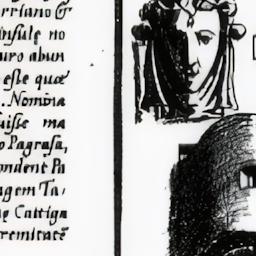 rriano &
insulę no
uro abun
esse quæ
. Nomina
uisse ma
o Pagrasa,
ondent Pa
agem Ta,
ę Cattiga
remitatē